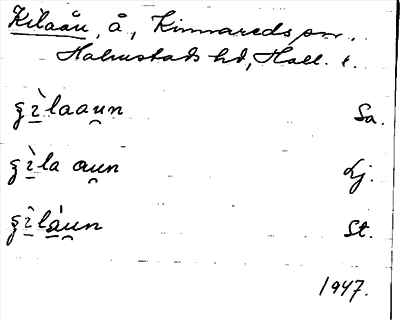 Kilaån, å, Kinnareds sn.
Halmstads hd, Hall. l.
gı̣̀laau̯n Sa.
gı̣̀la au̯n Lj.
gı̣̀láu̯n St.
1947.